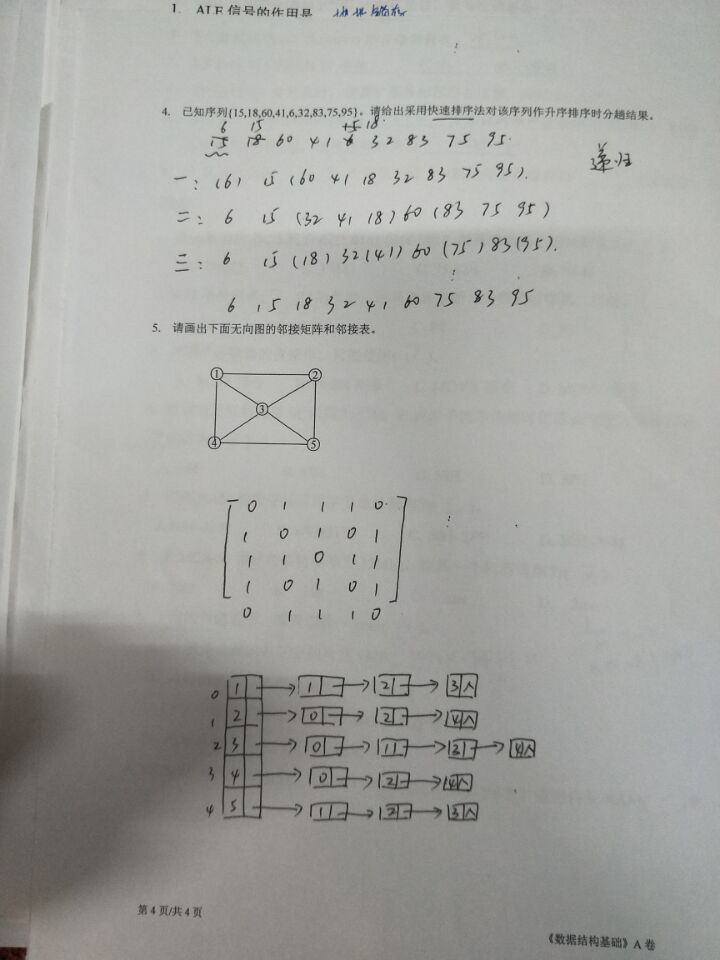 1. ALE 信号的作用是
4. 已知序列{15,18,60,41,6,32,83,75,95}。请给出采用快速排序法对该序列作升序排序时分趟结果。
6 15 15 18
15 18 60 41 6 32 83 75 95.
递归
一: (6) 15 (60 41 18 32 83 75 95).
二: 6 15 (32 41 18) 60 (83 75 95)
三: 6 15 (18) 32 (41) 60 (75) 83 (95).
6 15 18 32 41 60 75 83 95
5. 请画出下面无向图的邻接矩阵和邻接表。
① ②
③
④ ⑤
0 1 1 1 0
1 0 1 0 1
1 1 0 1 1
1 0 1 0 1
0 1 1 1 0
0 1 1 2 3 ∧
1 2 0 2 4 ∧
2 3 0 1 3 4 ∧
3 4 0 2 4 ∧
4 5 1 2 3 ∧
第 4 页/共 4 页
《数据结构基础》A 卷